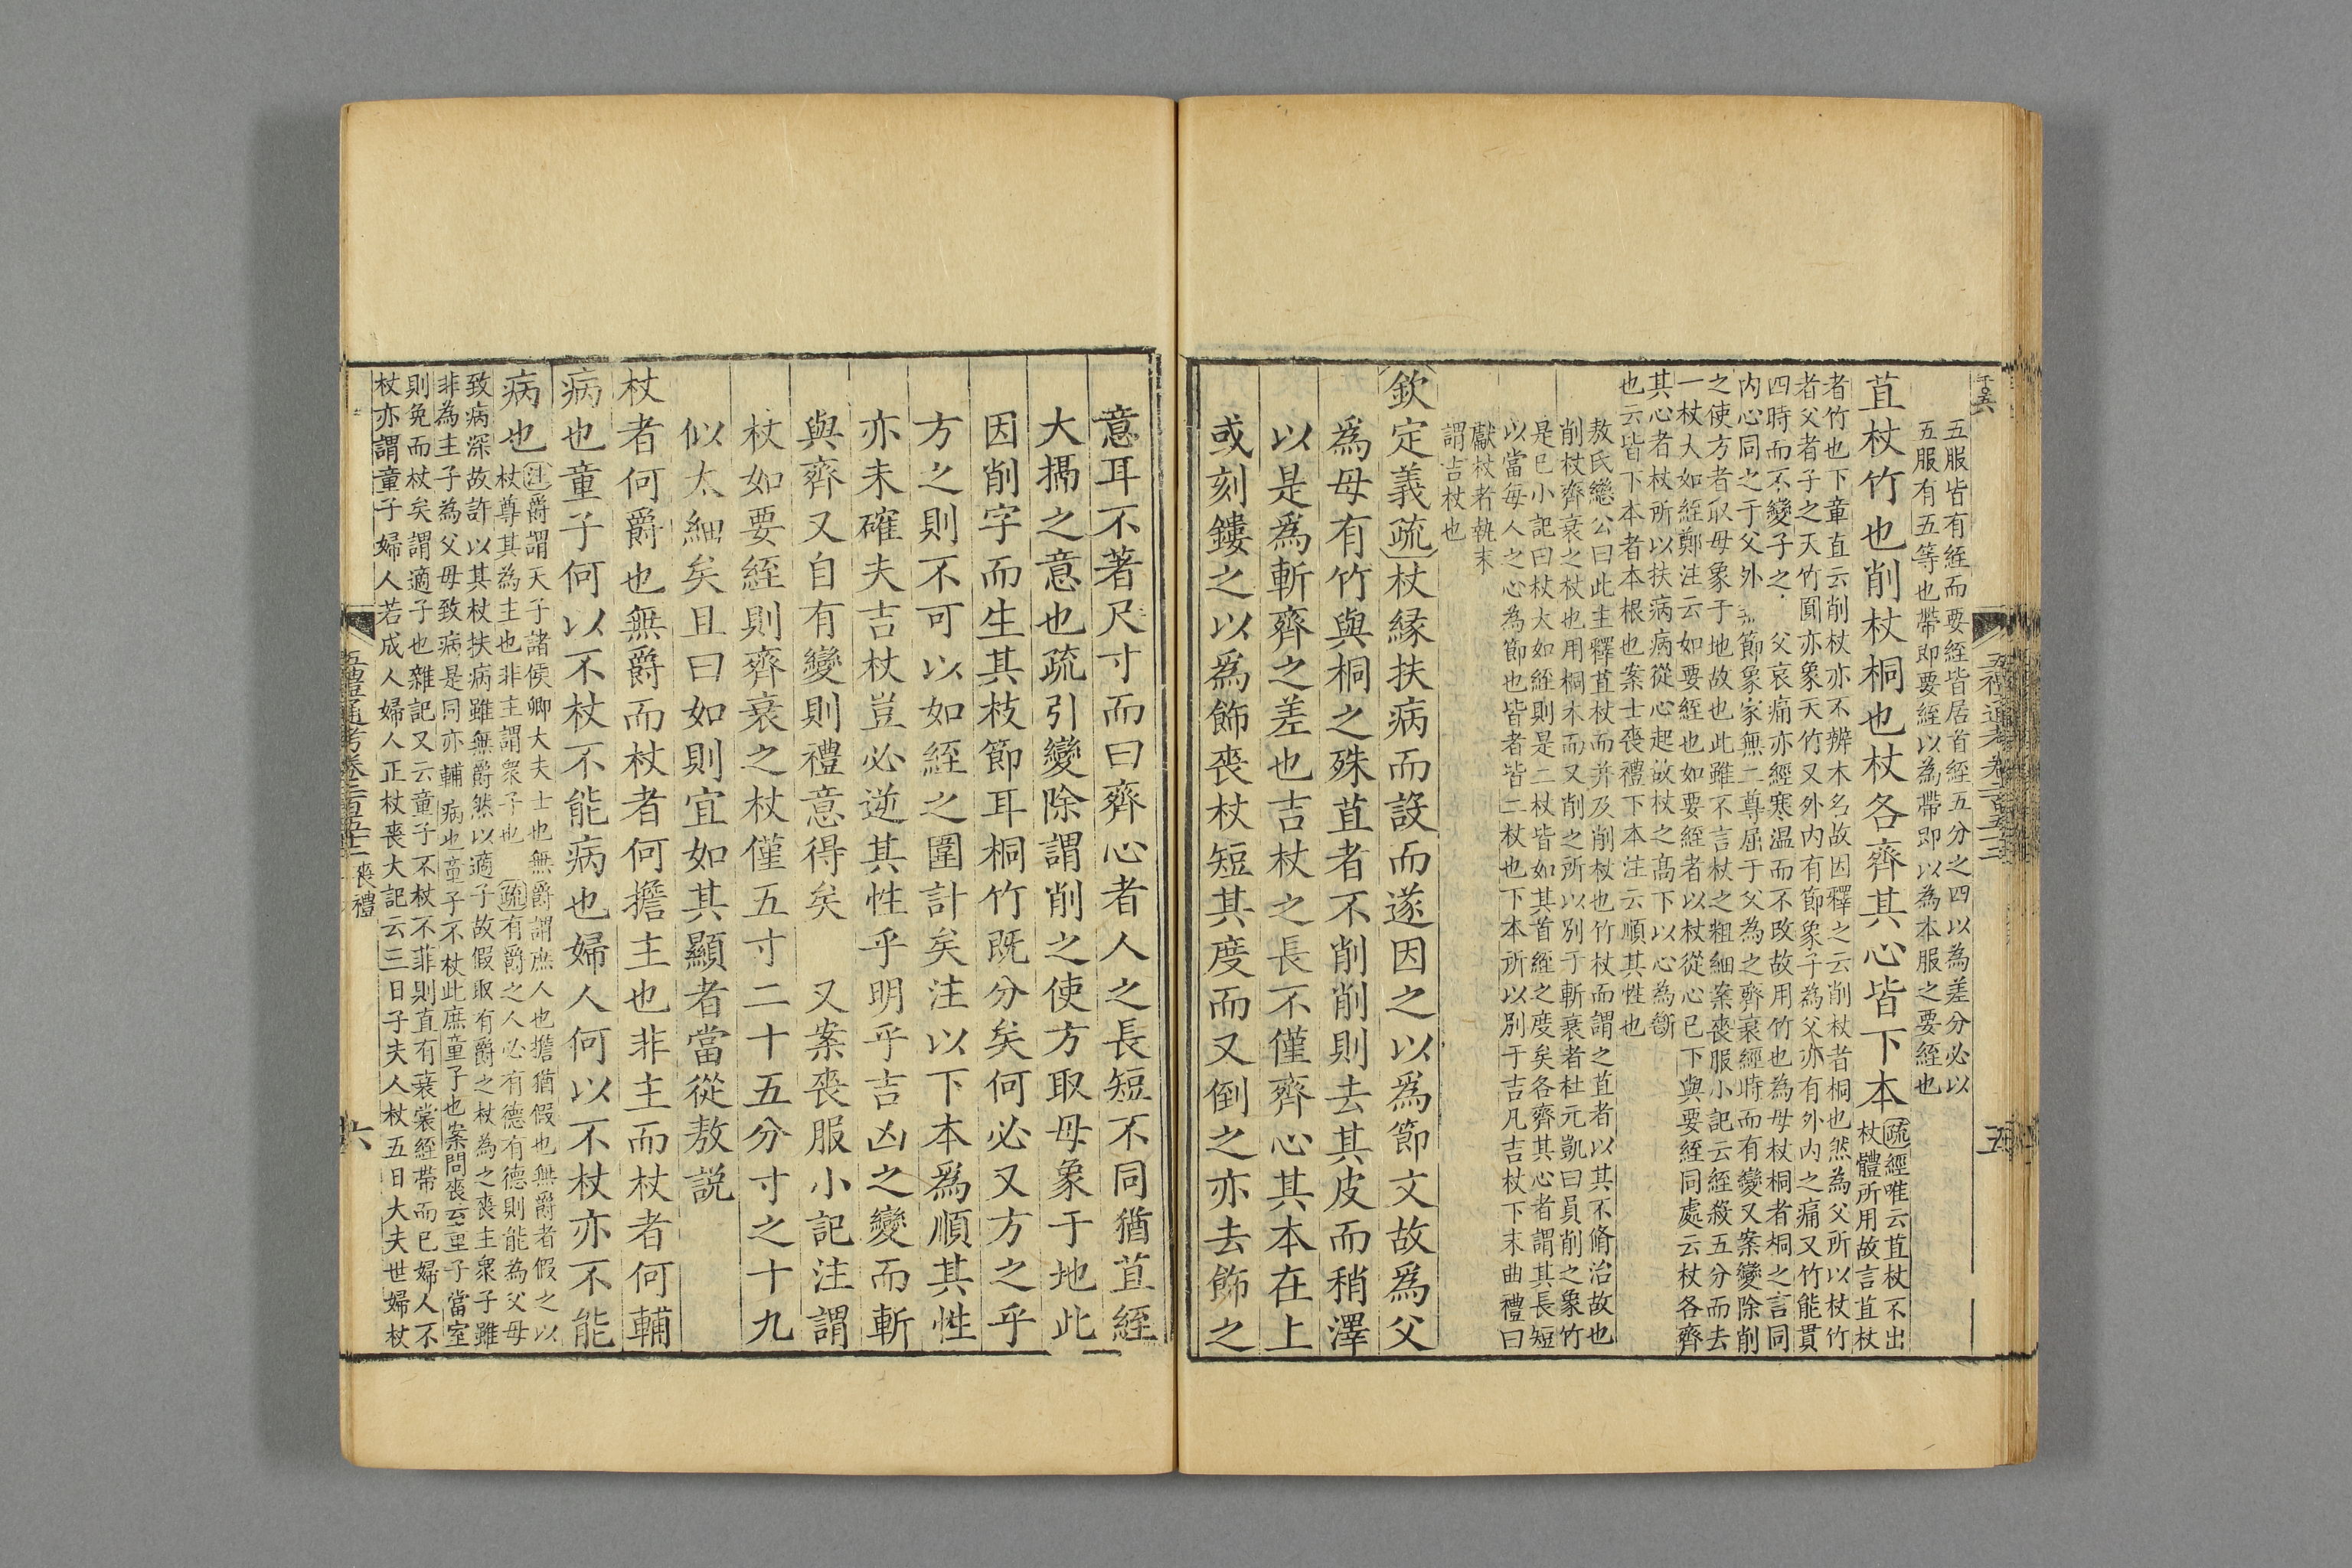 五服皆有絰而要絰皆居首絰五分之四以為差分必以
五服有五等也帶即要絰以為帶即以為本服之要絰也
苴杖竹也削杖桐也杖各齊其心皆下本
疏經唯云苴杖不出
杖體所用故言苴杖
者竹也下章直云削杖亦不辨木名故因釋之云削杖者桐也然為父所以杖竹
者父者子之天竹圓亦象天竹又外内有節象子為父亦有外内之痛又竹能貫
四時而不變子之 父哀痛亦經寒温而不改故用竹也為母杖桐者桐之言同
内心同之于父外 節象家無二尊屈于父為之齊衰經時而有變又案變除削
之使方者取母象于地故也此雖不言杖之粗細案喪服小記云絰殺五分而去
一杖大如絰鄭注云如要絰也如要絰者以杖從心已下與要絰同處云杖各齊
其心者杖所以扶病病從心起故杖之高下以心為斷
也云皆下本者本根也案士喪禮下本注云順其性也
敖氏繼公曰此主釋苴杖而并及削杖也竹杖而謂之苴者以其不脩治故也
削杖齊衰之杖也用桐木而又削之所以別于斬衰者杜元凱曰員削之象竹
是已小記曰杖大如絰則是二杖皆如其首絰之度矣各齊其心者謂其長短
以當每人之心為節也皆者皆二杖也下本所以別于吉凡吉杖下末曲禮曰
獻杖者執末
謂吉杖也
欽定義疏杖緣扶病而設而遂因之以爲節文故爲父
爲母有竹與桐之殊苴者不削削則去其皮而稍澤
以是爲斬齊之差也吉杖之長不僅齊心其本在上
或刻鏤之以爲飾喪杖短其度而又倒之亦去飾之
五禮通考卷二百五十二
五
意耳不著尺寸而曰齊心者人之長短不同猶苴絰
大搹之意也疏引變除謂削之使方取母象于地此
因削字而生其枝節耳桐竹既分矣何必又方之乎
方之則不可以如絰之圍計矣注以下本爲順其性
亦未確夫吉杖豈必逆其性乎明乎吉凶之變而斬
與齊又自有變則禮意得矣 又案喪服小記注謂
杖如要絰則齊衰之杖僅五寸二十五分寸之十九
似太細矣且曰如則宜如其顯者當從敖説
杖者何爵也無爵而杖者何擔主也非主而杖者何輔
病也童子何以不杖不能病也婦人何以不杖亦不能
病也
注爵謂天子諸侯卿大夫士也無爵謂庶人也擔猶假也無爵者假之以
杖尊其為主也非主謂衆子也 疏有爵之人必有德有德則能為父母
致病深故許以其杖扶病雖無爵然以適子故假取有爵之杖為之喪主衆子雖
非為主子為父母致病是同亦輔病也童子不杖此庶童子也案問喪云童子當室
則免而杖矣謂適子也雜記又云童子不杖不菲則直有衰裳絰帶而已婦人不
杖亦謂童子婦人若成人婦人正杖喪大記云三日子夫人杖五日大夫世婦杖
五禮通考卷二百五十二 喪禮
六